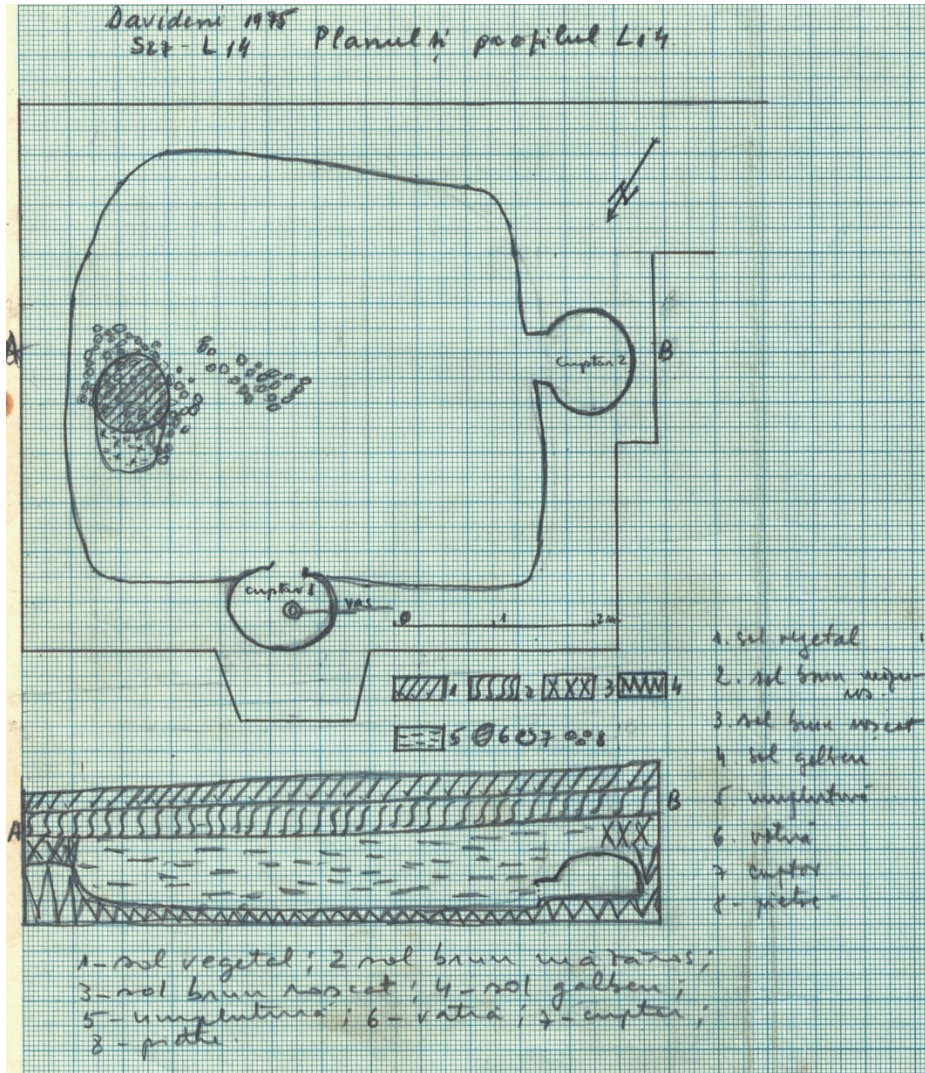 Davideni 1975
S27 - L14 Planul și profilul L14
A
cuptor 2
B
cuptor 1
vas
0 1 2 m
1 2 3 4
5 6 7 8
1. sol vegetal
2. sol brun
3. sol brun roșcat
4 sol galben
5 umplutură
6. vatră
7 cuptor
8 - pietre
A
B
XXX
1 - sol vegetal; 2 sol brun măzăros;
3 - sol brun roșcat; 4 - sol galben;
5 - umplutură; 6 - vatră; 7 - cuptor;
8 - pietre.